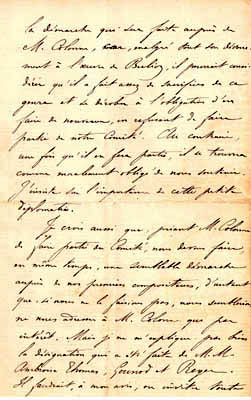 la démarche qui sera faite auprès de
M. Colonne, malgré tout son dévoue-
ment à l'œuvre de Berlioz, il pourrait consi-
dérer qu'il a fait assez de sacrifices de ce
genre et se dérober à l'obligation d'en
faire de nouveaux, en refusant de faire
partie de notre Comité. Au contraire,
une fois qu'il en fera partie, il se trouvera
comme moralement obligé de nous soutenir.
J'insiste sur l'importance de cette petite
diplomatie.
Je crois aussi que, priant M. Colonne
de faire partie du Comité, nous devons faire
en même temps, une semblable démarche
auprès de nos premiers compositeurs, d'autant
que si nous ne le faisions pas, nous semblerions
ne nous adresser à M. Colonne que par
intérêt. Mais je ne m'explique pas bien
la désignation qui a été faite de M.M.
Ambroise Thomas, Gounod et Reyer.
Il faudrait, à mon avis, ou inviter toute